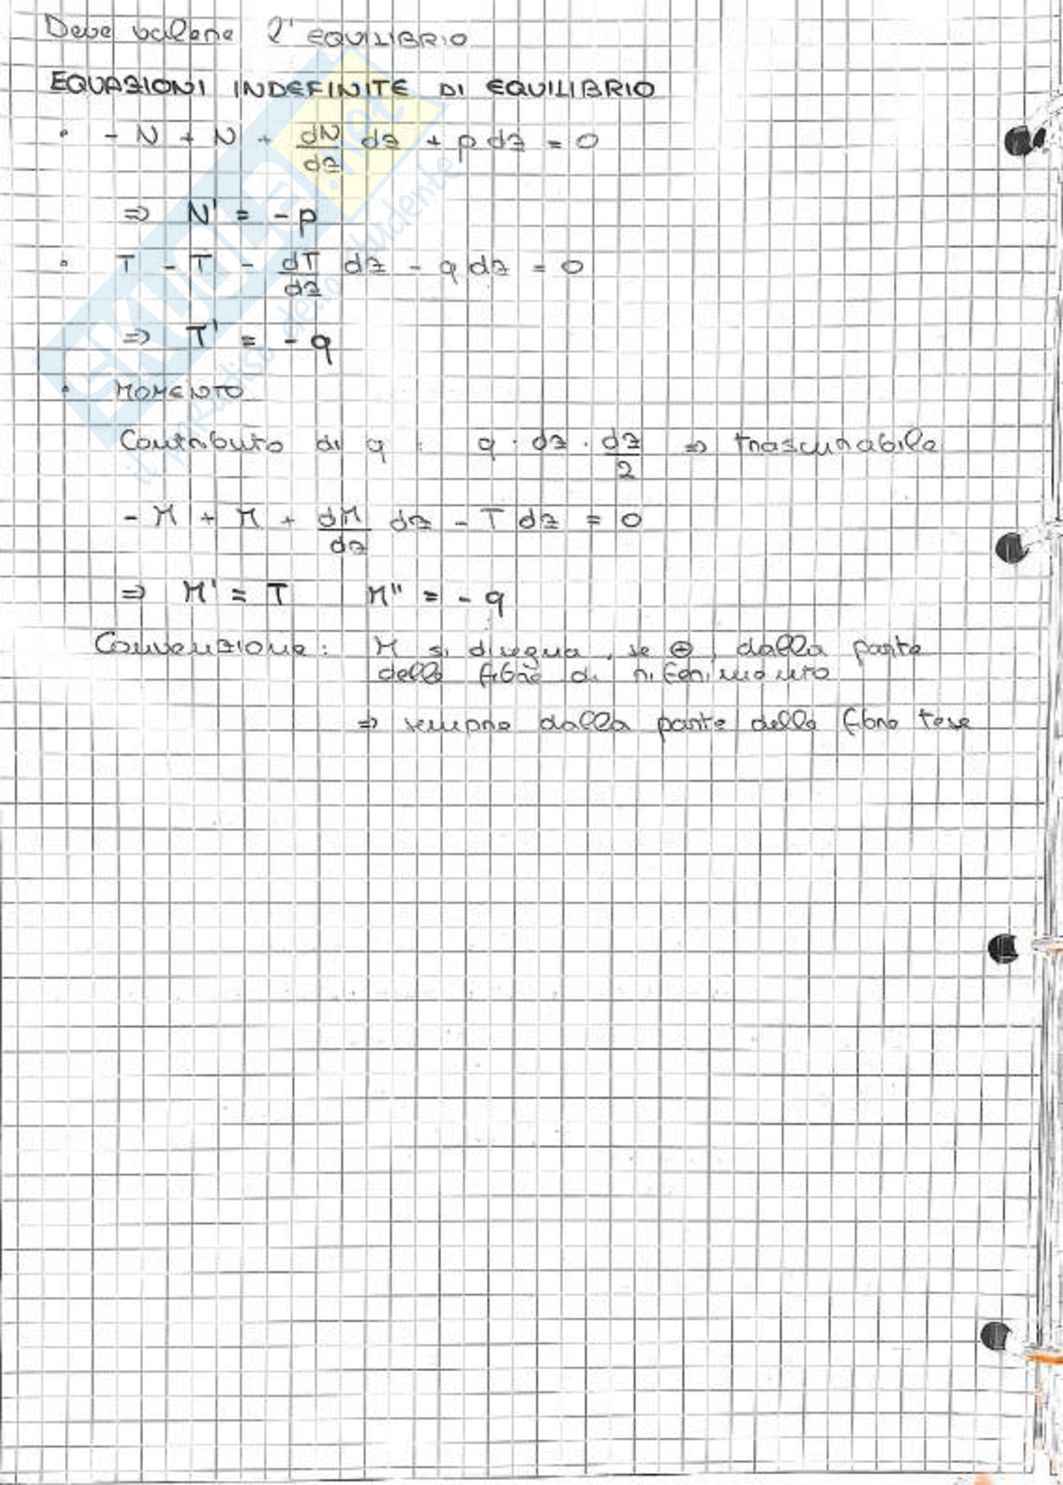 Deve valere l'EQUILIBRIO
EQUAZIONI INDEFINITE DI EQUILIBRIO
• - N + N + dN/dz dz + p dz = 0
⇒ N' = - p
• T - T - dT/dz dz - q dz = 0
⇒ T' = - q
• MOMENTO
Contributo di q : q · dz · dz/2 ⇒ trascurabile
- M + M + dM/dz dz - T dz = 0
⇒ M' = T M'' = - q
Convenzione: M si disegna, se ⊕, dalla parte
delle fibre di riferimento
⇒ sempre dalla parte delle fibre tese
SKUOLA.net
il paradiso dello studente